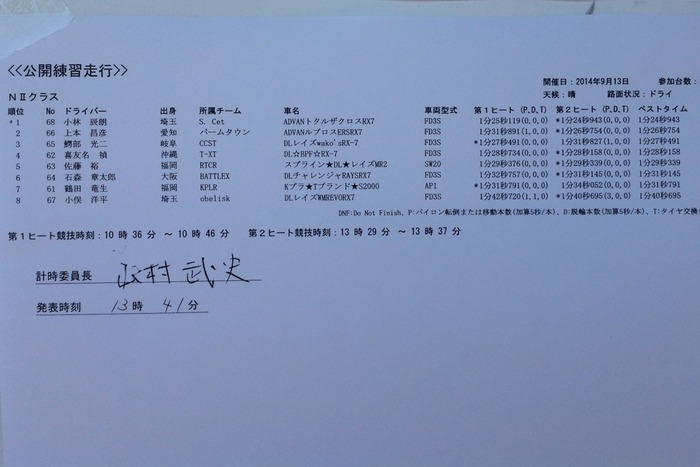 <<公開練習走行>>
開催日：2014年9月13日 参加台数：
NⅡクラス 天候：晴 路面状況：ドライ
順位 No ドライバー 出身 所属チーム 車名 車両型式 第1ヒート(P,D,T) 第2ヒート(P,D,T) ベストタイム
*1 68 小林 辰朗 埼玉 S. Cet ADVANトタルザクロスRX7 FD3S 1分25秒119(0,0,0) *1分24秒943(0,0,0) 1分24秒943
2 66 上本 昌彦 愛知 パームタウン ADVANルブロスERSRX7 FD3S 1分31秒891(1,0,0) *1分26秒754(0,0,0) 1分26秒754
3 65 鰐部 光二 岐阜 CCST DLレイズwako'sRX-7 FD3S *1分27秒491(0,0,0) 1分31秒827(1,0,0) 1分27秒491
4 62 喜友名 禎 沖縄 T-XT DL☆BPF☆RX-7 FD3S 1分28秒734(0,0,0) *1分28秒158(0,0,0) 1分28秒158
5 63 佐藤 裕 福岡 RTCR スプライン★DL★レイズMR2 SW20 1分29秒376(0,0,0) *1分29秒339(0,0,0) 1分29秒339
6 64 石森 章太郎 大阪 BATTLEX DLチャレンジャRAYSRX7 FD3S 1分32秒757(0,0,0) *1分31秒145(0,0,0) 1分31秒145
7 61 鶴田 竜生 福岡 KPLR Kプラ★Tブランド★S2000 AP1 *1分31秒791(0,0,0) 1分34秒052(0,0,0) 1分31秒791
8 67 小俣 洋平 埼玉 obelisk DLレイズWMREVORX7 FD3S 1分42秒720(1,1,0) *1分40秒695(3,0,0) 1分40秒695
DNF:Do Not Finish、P:パイロン転倒または移動本数(加算5秒/本)、D:脱輪本数(加算5秒/本)、T:タイヤ交換
第1ヒート競技時刻：10 時 36 分 ～ 10 時 46 分 第2ヒート競技時刻：13 時 29 分 ～ 13 時 37 分
計時委員長 山村 武史
発表時刻 13 時 41 分